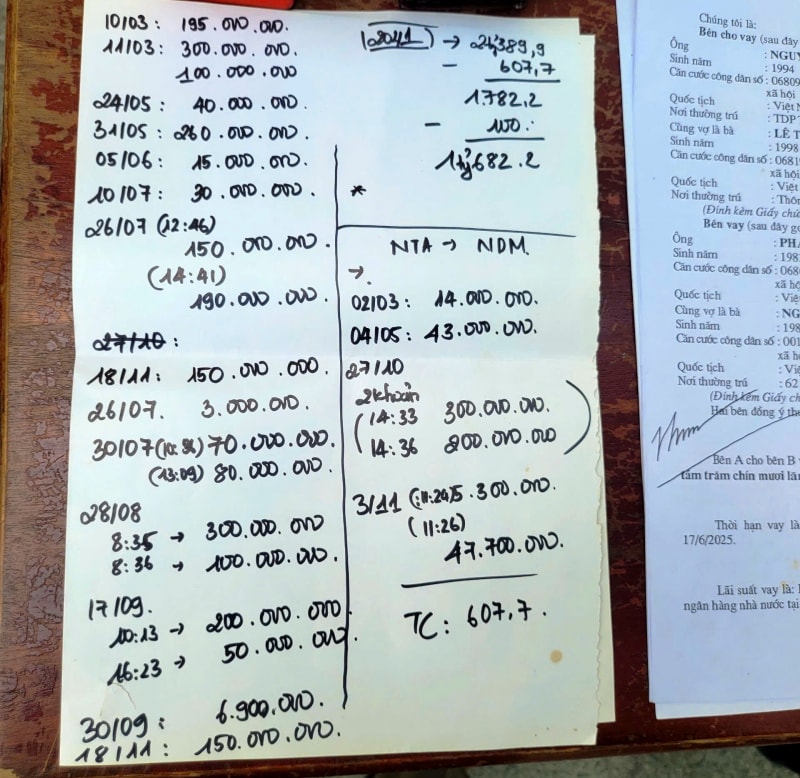 10/03: 195.000.000.
11/03: 300.000.000.
100.000.000
24/05: 40.000.000.
31/05: 260.000.000.
05/06: 15.000.000.
10/07: 30.000.000.
26/07 (12:46)
150.000.000.
(14:41)
190.000.000.
27/10:
18/11: 150.000.000.
26/07. 3.000.000.
30/07 70.000.000.
(13:09) 80.000.000.
28/08
8:35 → 300.000.000
8:36 → 100.000.000.
17/09.
10:13 → 200.000.000
16:23 → 50.000.000.
30/09: 6.900.000.
18/11: 150.000.000.
→ 389,9
- 607,7
1.782,2
- 100.
1tỷ682.2
*
NTA → NDM.
→.
02/03: 14.000.000.
04/05: 43.000.000.
27/10
2 khoản
(14:33 300.000.000.
14:36 200.000.000)
3/11 300.000.000.
(11:26)
47.700.000.
TC: 607,7.
Chúng tôi là:
Bên cho vay (sau đây
Ông : NGUY
Sinh năm : 1994
Căn cước công dân số : 06809
xã hội
Quốc tịch : Việt N
Nơi thường trú : TDP
Cùng vợ là bà : LÊ T
Sinh năm : 1998
Căn cước công dân số : 0681
xã hội
Quốc tịch : Việt
Nơi thường trú : Thôn
(Đính kèm Giấy chứ
Bên vay (sau đây gọ
Ông : PHA
Sinh năm : 198
Căn cước công dân số : 068
xã hộ
Quốc tịch : Việ
Cùng vợ là bà : NG
Sinh năm : 198
Căn cước công dân số : 001
xã h
Quốc tịch : Việ
Nơi thường trú : 62
(Đính kèm Giấy c
Hai bên đồng ý the
Bên A cho bên B
tám trăm chín mươi lăm
Thời hạn vay là
17/6/2025.
Lãi suất vay là:
ngân hàng nhà nước tại